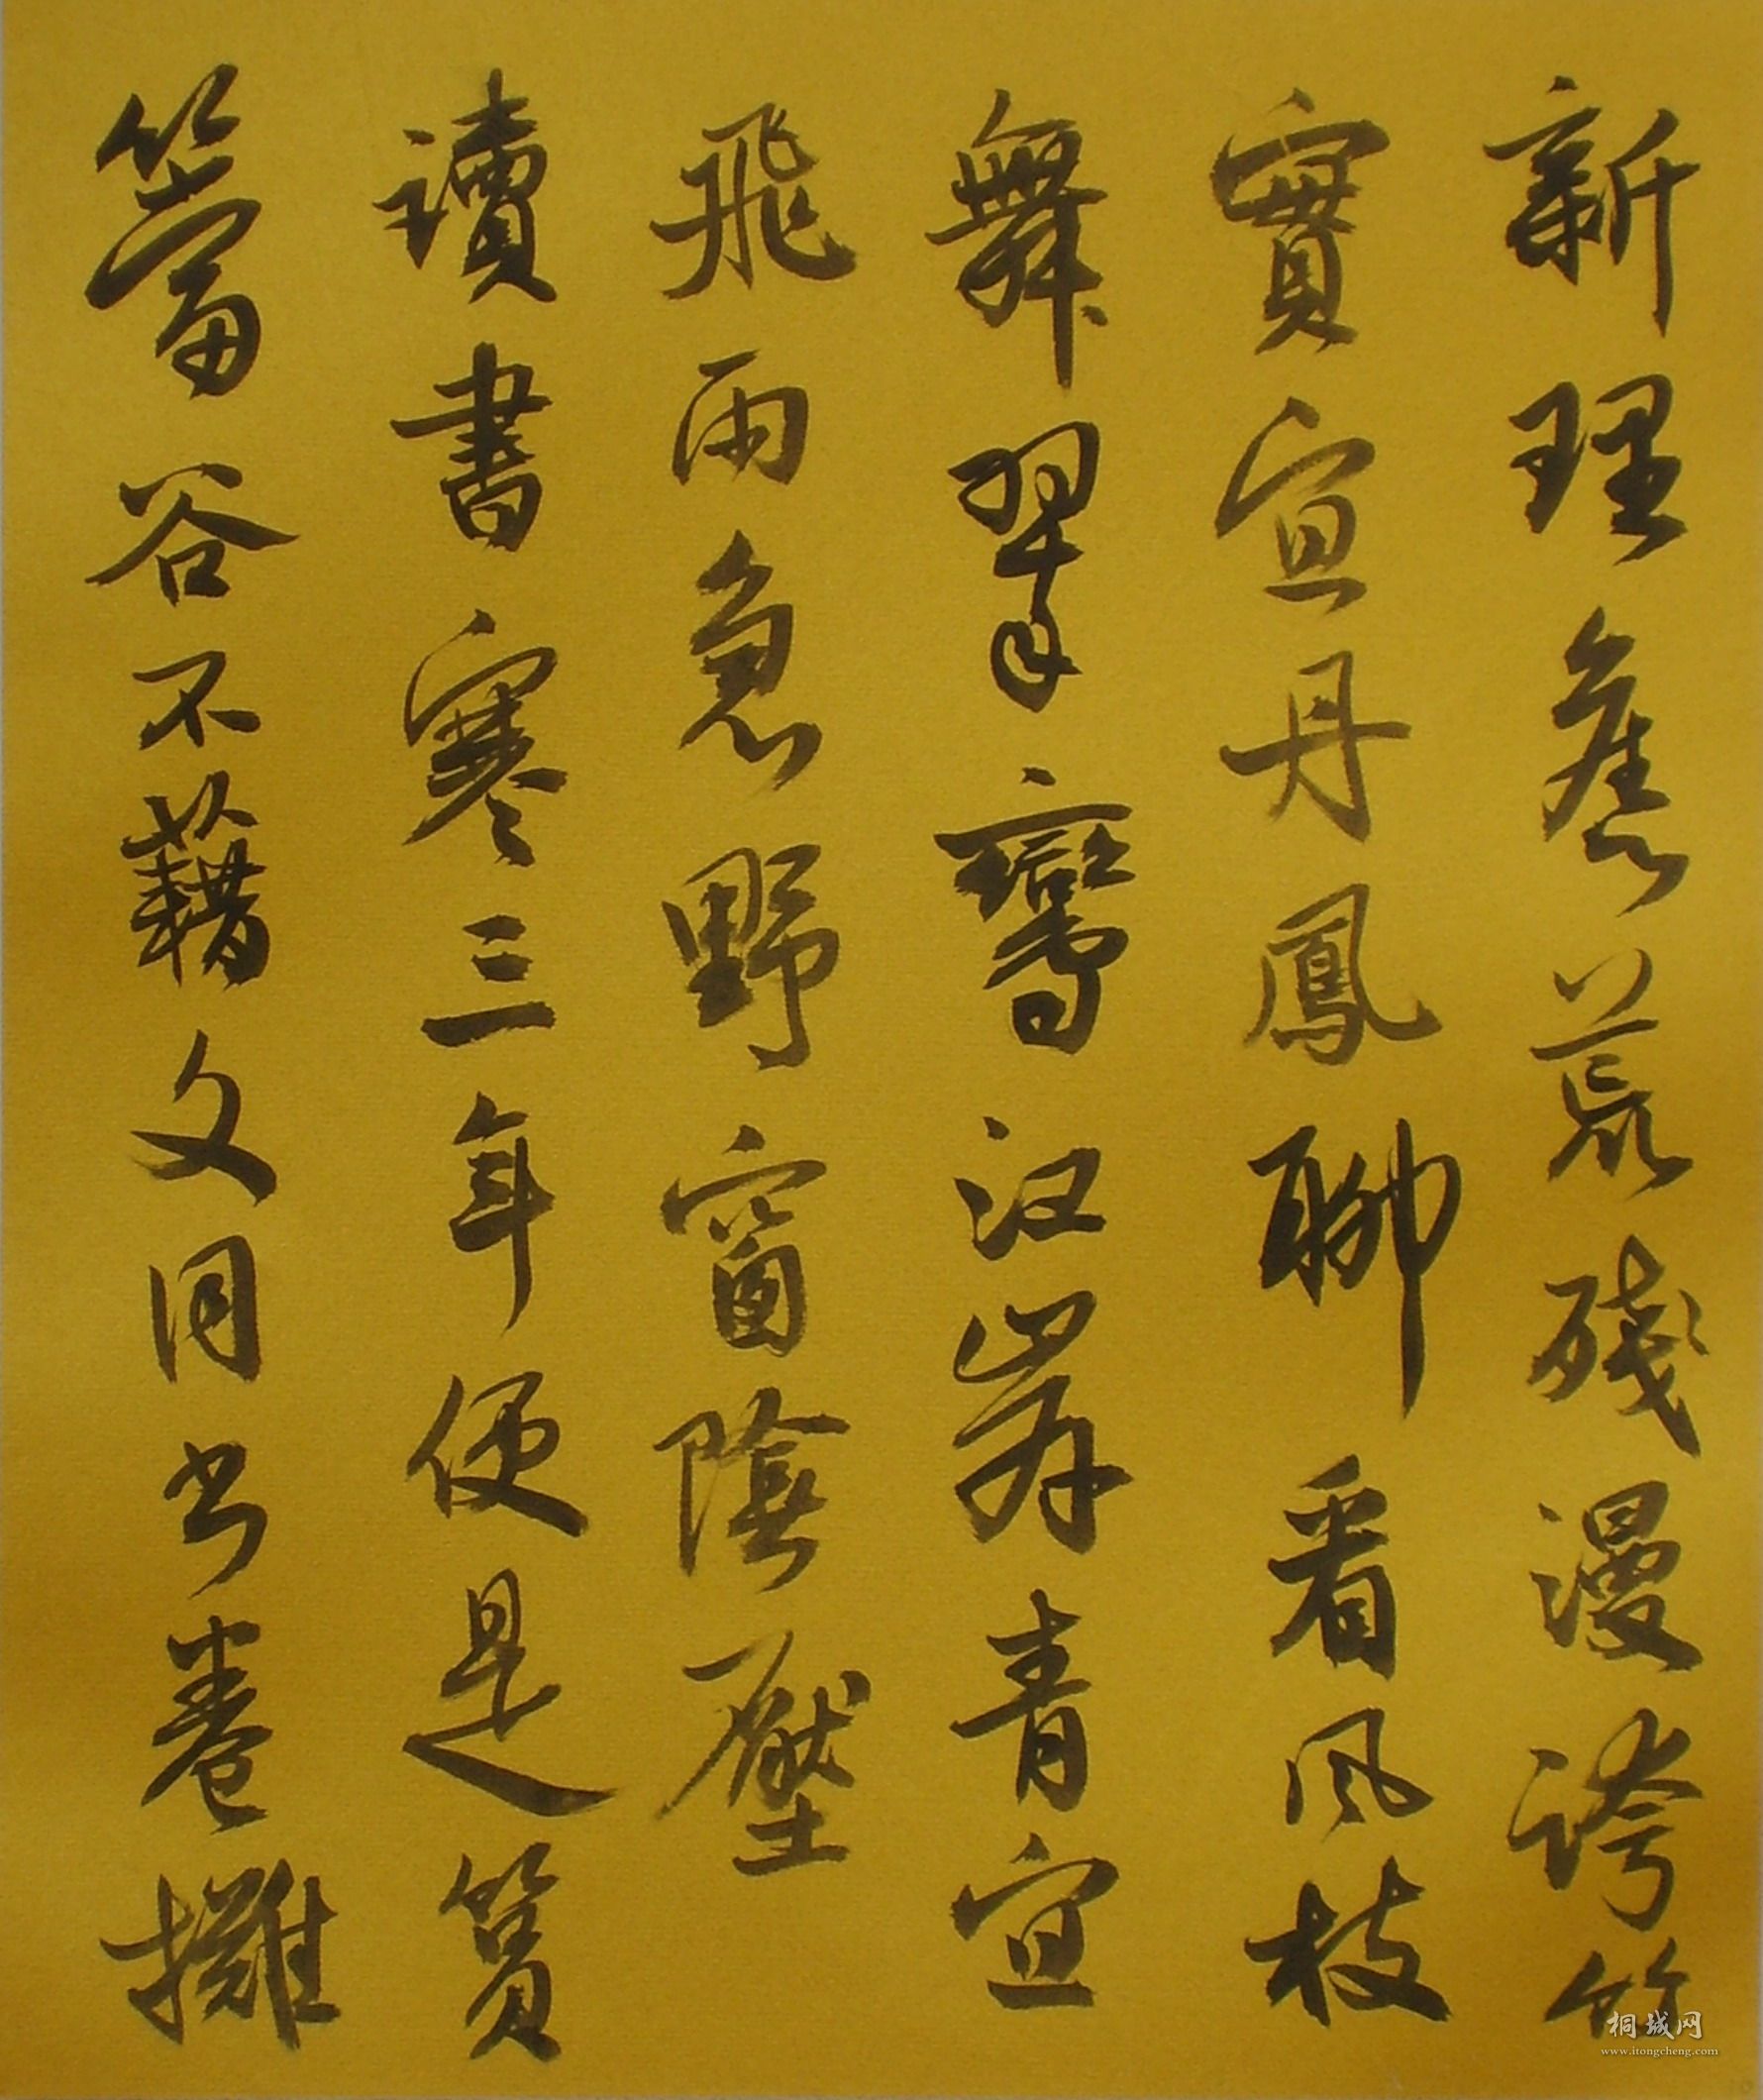 新理舊荒殘漫誇竹
實宜丹鳳聊看風枝
舞翠鸞江岸青宜
飛雨急野窗陰壓
讀書寒三年便是篔
簹谷不藉文同書卷攤
桐城网
www.itongcheng.com